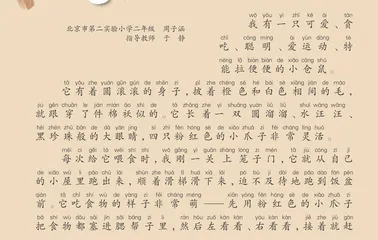 wǒ yǒu yì zhī kě ài tān
我有一只可爱、贪
北京市第二实验小学二年级 周子涵
指导教师 于静
chī cōng míng ài yùn dòng tè
吃、聪明、爱运动、特
néng lā biàn biàn de xiǎo cāng shǔ
能拉便便的小仓鼠。
tā yǒu zhe yuán gǔn gǔn de shēn zi pī zhe chéng sè hé bái sè xiāng jiàn de máo
它有着圆滚滚的身子，披着橙色和白色相间的毛，
jiù gēn chuān le jiàn mián ǎo shì de tā zhǎng zhe yì shuāng yuán liū liū shuǐ wāng wāng
就跟穿了件棉袄似的。它长着一双圆溜溜、水汪汪、
hēi zhēn zhū bān de dà yǎn jīng sì zhī fěn hóng sè de xiǎo zhuǎ zi fēi cháng líng huó
黑珍珠般的大眼睛，四只粉红色的小爪子非常灵活。
měi cì gěi tā wèi shí shí wǒ gāng yì guān shàng lóng zi mén tā jiù cóng zì jǐ
每次给它喂食时，我刚一关上笼子门，它就从自己
de xiǎo wū lǐ pǎo chū lái shùn zhe huá tī huá xià lái pò bù jí dài de pǎo dào fàn pén
的小屋里跑出来，顺着滑梯滑下来，迫不及待地跑到饭盆
qián tā chī shí wù de yàng zi fēi cháng méng xiān yòng fěn hóng sè de xiǎo zhuǎ zi
前。它吃食物的样子非常萌——先用粉红色的小爪子
bǎ shí wù dōu sāi jìn sāi bāng zi lǐ rán hòu zuǒ kàn kan yòu kàn kan jiē zhe jiù gǎn
把食物都塞进腮帮子里，然后左看看、右看看，接着就赶